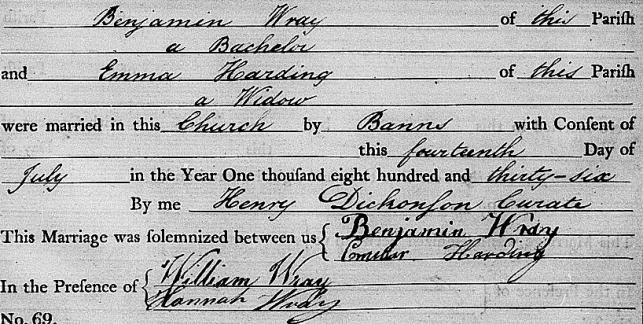 Benjamin Wray of this Parish
a Bachelor
and Emma Harding of this Parish
a Widow
were married in this Church by Banns with Consent of
this fourteenth Day of
July in the Year One thousand eight hundred and thirty-six
By me Henry Dickonson Curate
This Marriage was solemnized between us { Benjamin Wray
Emma Harding
In the Presence of { William Wray
Hannah Wray
No. 69.